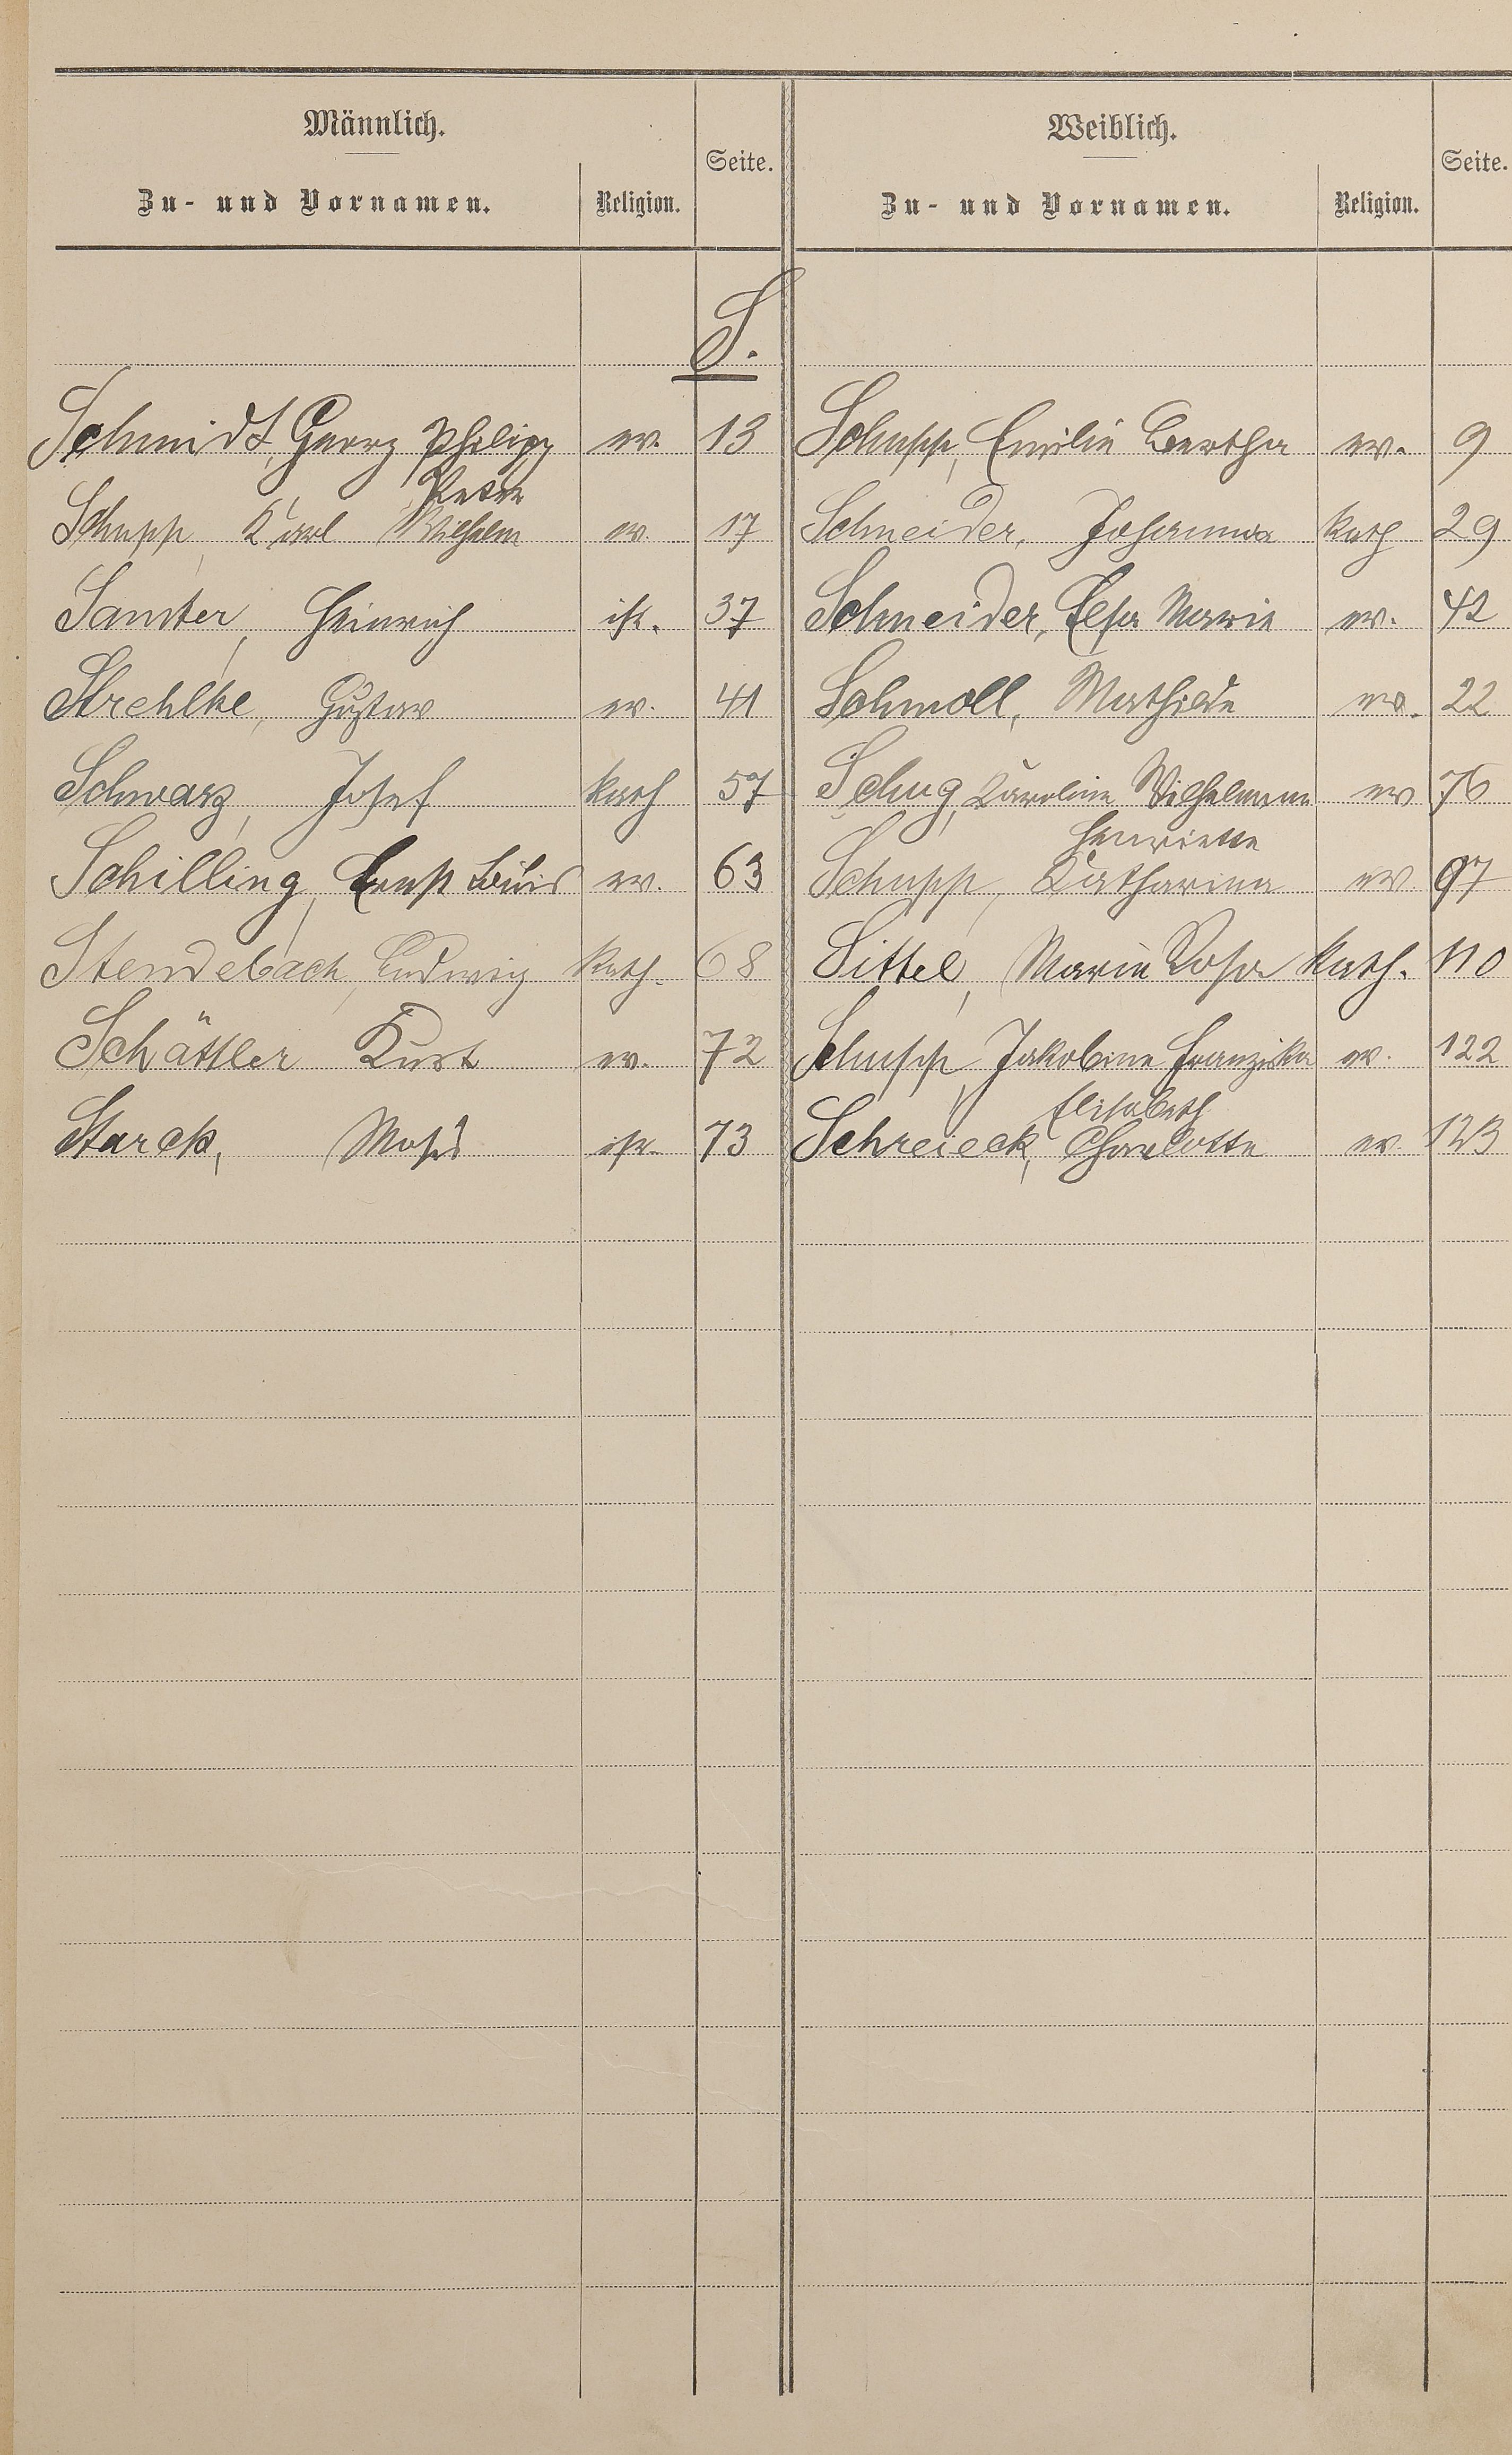 Männlich. Weiblich.
Seite. Seite.
Zu- und Vornamen. Religion. Zu- und Vornamen. Religion.
S.
Schmidt, Georg Philipp ev. 13 Schupp, Emilie Bertha ev. 9
Peter
Schupp, Karl Wilhelm ev. 17 Schneider, Johanna kath 29
Samter, Heinrich isr. 37 Schneider, Elsa Marie ev. 42
Strehlke, Gustav ev. 41 Schmoll, Mathilde ev. 22
Schwarz, Josef kath 57 Schug, Karoline Wilhelmine ev 76
Henriette
Schilling, Ernst Louis ev. 63 Schupp, Katharina ev 97
Stendebach, Ludwig kath. 68 Sittel, Marie Rosa kath. 110
Schättler Kurt ev. 72 Schupp, Jakobine Franziska ev. 122
Elisabeth
Starck, Moses isr. 73 Schreieck, Charlotte ev. 123